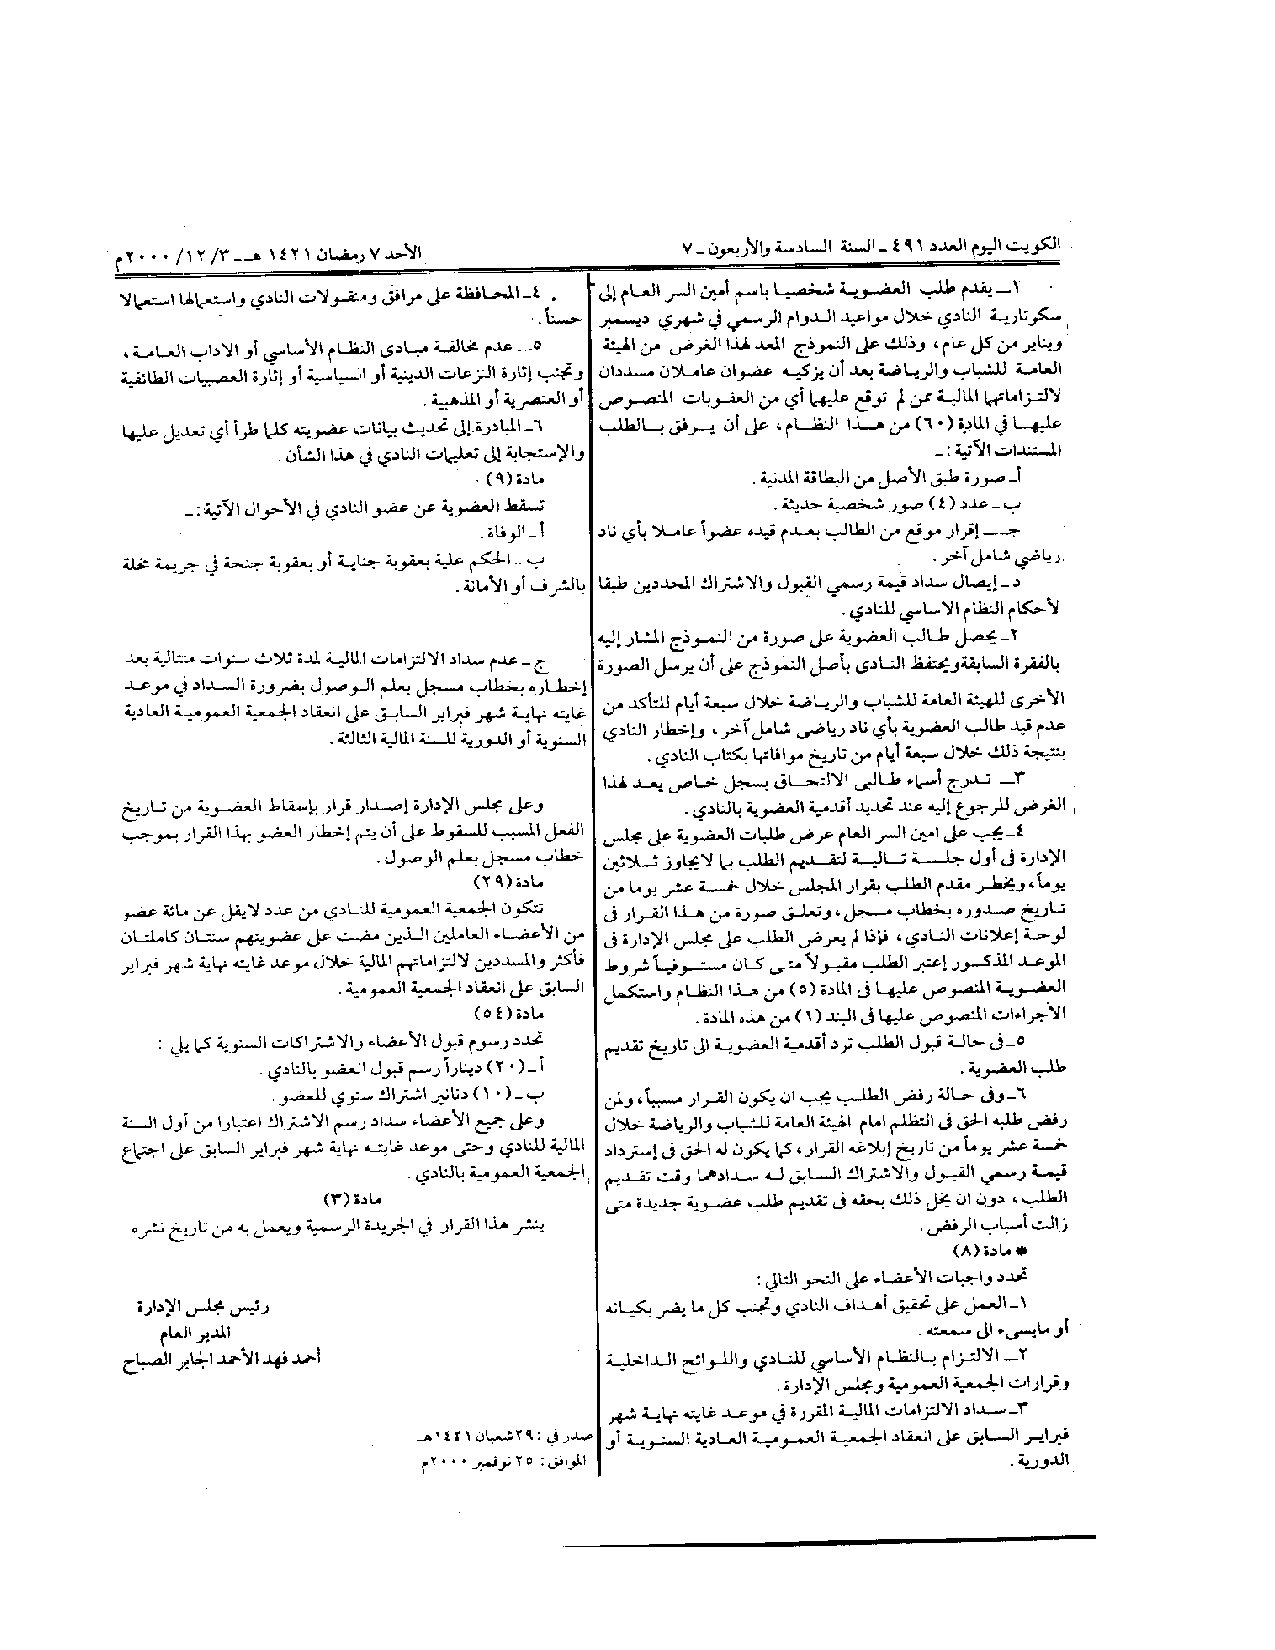 الكويت اليوم العدد ٤٩١ - السنة السادسة والأربعون - ٧
الأحد ٧ رمضان ١٤٢١ هـ - ٢٠٠٠/١٢/٣م
١- يقدم طلب العضوية شخصيا باسم أمين السر العام إلى
سكرتارية النادي خلال مواعيد الدوام الرسمي في شهري ديسمبر
ويناير من كل عام، وذلك على النموذج المعد لهذا الغرض من الهيئة
العامة للشباب والرياضة بعد أن يزكيه عضوان عاملان مسددان
لالتزاماتهما المالية ممن لم توقع عليهما أي من العقوبات المنصوص
عليهـا في المادة (٦٠) من هـذا النظـام، على أن يـرفق بـالطلب
المستندات الآتية :-
أ- صورة طبق الأصل من البطاقة المدنية .
ب- عدد (٤) صور شخصية حديثة .
جـ- إقرار موقع من الطالب بعدم قيده عضواً عاملا بأي ناد
رياضي شامل آخر .
د- إيصال سداد قيمة رسمي القبول والاشتراك المحددين طبقا
لأحكام النظام الاساسي للنادي .
٢- يحصل طالب العضوية على صورة من النموذج المشار إليه
بالفقرة السابقة ويحتفظ النادى بأصل النموذج على أن يرسل الصورة
الأخرى للهيئة العامة للشباب والرياضة خلال سبعة أيام للتأكد من
عدم قيد طالب العضوية بأي ناد رياضى شامل آخر، وإخطار النادي
بنتيجة ذلك خلال سبعة أيام من تاريخ موافاتها بكتاب النادي .
٣- تدرج أسماء طالبى الالتحاق بسجل خاص يعد لهذا
الغرض للرجوع إليه عند تحديد أقدمية العضوية بالنادي .
٤- يجب على امين السر العام عرض طلبات العضوية على مجلس
الإدارة فى أول جلسة تالية لتقديم الطلب بما لايجاوز ثلاثين
يوماً، ويخطر مقدم الطلب بقرار المجلس خلال خمسة عشر يوما من
تاريخ صدوره بخطاب مسجل، وتعلق صورة من هذا القرار فى
لوحة إعلانات النادى، فإذا لم يعرض الطلب على مجلس الإدارة فى
الموعد المذكور إعتبر الطلب مقبولاً متى كان مستوفياً شروط
العضوية المنصوص عليها فى المادة (٥) من هذا النظام واستكمل
الأجراءات المنصوص عليها فى البند (٦) من هذه المادة .
٥- فى حالة قبول الطلب ترد أقدمية العضوية الى تاريخ تقديم
طلب العضوية .
٦- وفى حالة رفض الطلب يجب ان يكون القرار مسبباً، ولمن
رفض طلبه الحق فى التظلم امام الهيئة العامة للشباب والرياضة خلال
خمسة عشر يوماً من تاريخ إبلاغه القرار، كما يكون له الحق فى إسترداد
قيمة رسمي القبول والاشتراك السابق له سدادهما وقت تقديم
الطلب، دون ان يخل ذلك بحقه فى تقديم طلب عضوية جديدة متى
زالت أسباب الرفض .
* مادة (٨)
تحدد واجبات الأعضاء على النحو التالي :
١- العمل على تحقيق أهداف النادي وتجنب كل ما يضر بكيانه
أو مايسىء الى سمعته .
٢- الالتزام بالنظام الأساسي للنادي واللوائح الداخلية
وقرارات الجمعية العمومية ومجلس الإدارة .
٣- سداد الالتزامات المالية المقررة في موعد غايته نهاية شهر
فبراير السابق على انعقاد الجمعية العمومية العادية السنوية أو
الدورية .
٤- المحافظة على مرافق ومنقولات النادي واستعمالها استعمالا
حسناً .
٥- عدم مخالفة مبادى النظام الأساسي أو الاداب العامة،
وتجنب إثارة النزعات الدينية أو السياسية أو إثارة العصبيات الطائفية
أو العنصرية أو المذهبية .
٦- المبادرة إلى تحديث بيانات عضويته كلما طرأ أي تعديل عليها
والإستجابة إلى تعليمات النادي في هذا الشأن .
مادة (٩)
تسقط العضوية عن عضو النادي في الأحوال الآتية :-
أ- الوفاة .
ب - الحكم علية بعقوبة جناية أو بعقوبة جنحة في جريمة مخلة
بالشرف أو الأمانة .
ج- عدم سداد الالتزامات المالية لمدة ثلاث سنوات متتالية بعد
إخطاره بخطاب مسجل بعلم الوصول بضرورة السداد في موعد
غايته نهاية شهر فبراير السابق على انعقاد الجمعية العمومية العادية
السنوية أو الدورية للسنة المالية الثالثة .
وعلى مجلس الإدارة إصدار قرار بإسقاط العضوية من تاريخ
الفعل المسبب للسقوط على أن يتم إخطار العضو بهذا القرار بموجب
خطاب مسجل بعلم الوصول .
مادة (٢٩)
تتكون الجمعية العمومية للنادي من عدد لايقل عن مائة عضو
من الأعضاء العاملين الذين مضت على عضويتهم سنتان كاملتان
فأكثر والمسددين لالتزاماتهم المالية خلال موعد غايته نهاية شهر فبراير
السابق على انعقاد الجمعية العمومية .
مادة (٥٤)
تحدد رسوم قبول الأعضاء والاشتراكات السنوية كما يلي :
أ- (٢٠) ديناراً رسم قبول العضو بالنادي .
ب- (١٠) دنانير اشتراك سنوي للعضو .
وعلى جميع الأعضاء سداد رسم الاشتراك اعتبارا من أول السنة
المالية للنادي وحتى موعد غايته نهاية شهر فبراير السابق على اجتماع
الجمعية العمومية بالنادي .
مادة (٣)
ينشر هذا القرار في الجريدة الرسمية ويعمل به من تاريخ نشره
رئيس مجلس الإدارة
المدير العام
أحمد فهد الأحمد الجابر الصباح
صدر في : ٢٩ شعبان ١٤٢١هـ
الموافق : ٢٥ نوفمبر ٢٠٠٠م